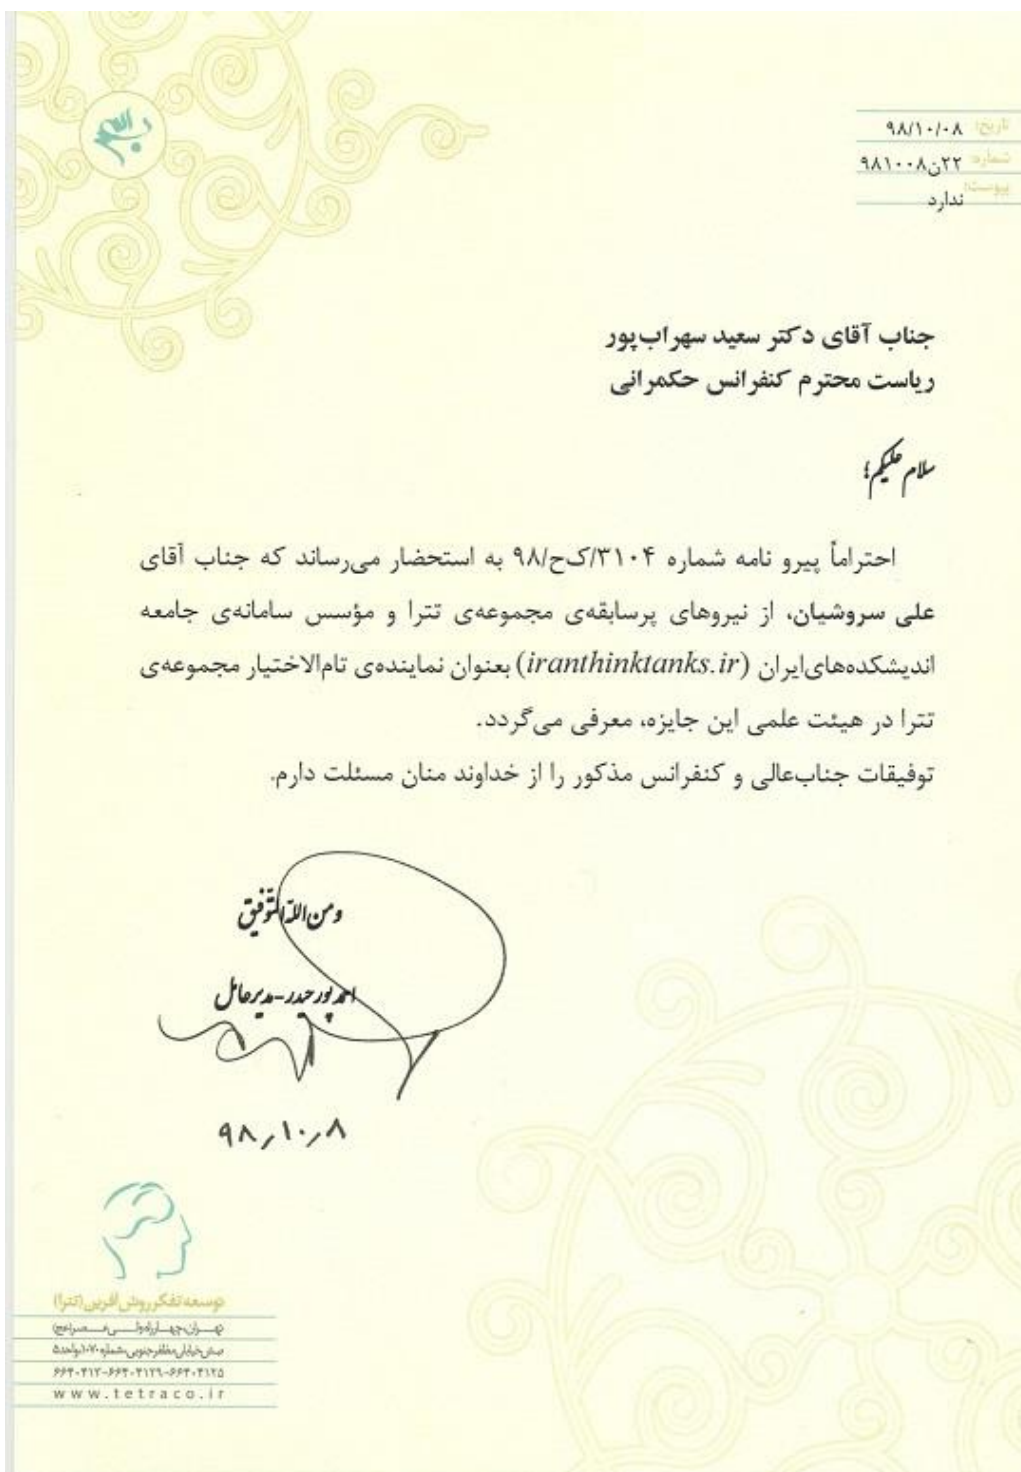 بسم الله
تاریخ: ۹۸/۱۰/۰۸
شماره: ۲۲ن۹۸۱۰۰۸
پیوست: ندارد
جناب آقای دکتر سعید سهراب‌پور
ریاست محترم کنفرانس حکمرانی
سلام علیکم؛
احتراماً پیرو نامه شماره ۳۱۰۴/ک‌ح/۹۸ به استحضار می‌رساند که جناب آقای
علی سروشیان، از نیروهای پرسابقه‌ی مجموعه‌ی تترا و مؤسس سامانه‌ی جامعه
اندیشکده‌های‌ایران (iranthinktanks.ir) بعنوان نماینده‌ی تام‌الاختیار مجموعه‌ی
تترا در هیئت علمی این جایزه، معرفی می‌گردد.
توفیقات جناب‌عالی و کنفرانس مذکور را از خداوند منان مسئلت دارم.
ومن الله التّوفیق
احمد پورحیدر-مدیرعامل
۹۸٫۱۰٫۸
توسعه تفکر روش آفرین (تترا)
تهران، چهارراه ولی عصر (عج)
نبش خیابان مظفر جنوبی، شماره ۱۰۷۰، واحد ۵
۶۶۴۰۴۱۲۵-۶۶۴۰۴۱۲۹-۶۶۴۰۴۱۳
www.tetraco.ir